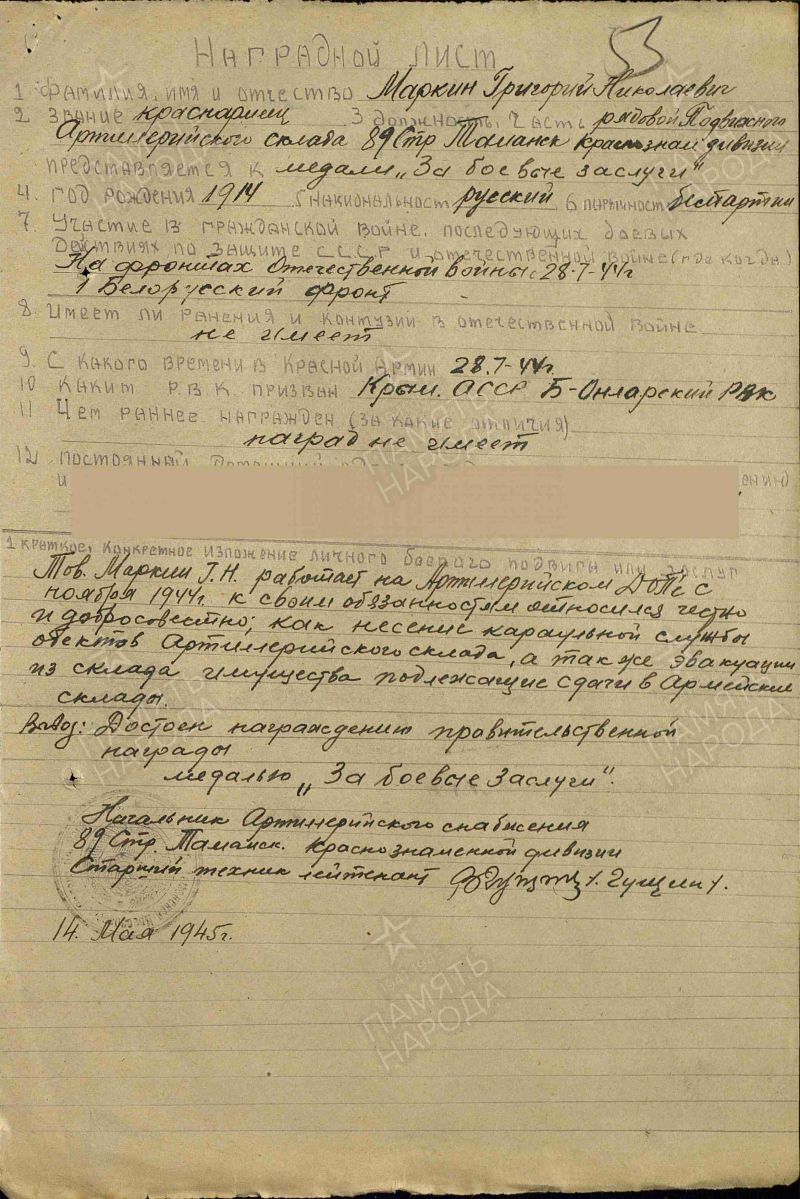 53
Наградной лист
1 Фамилия, имя и отчество Маркин Григорий Николаевич
2 Звание краснармеец 3 должность, часть рядовой Подвижного
Артилерийского склада 89 Стр Таманск краснознам дивизии
представляется к медали „За боевые заслуги“
4. Год рождения 1914 5 национальность русский 6 парт беспартии
7. Участие в гражданской войне, последующих боевых
действиях по защите СССР и отечественной войне (где когда)
На фронтах Отечественной войны с 28-7-44г
1 Белорусский фронт
8. Имеет ли ранения и контузии в отечественной войне
не имеет
9. С какого времени в Красной Армии 28.7-44г.
10 Каким Р.В.К. призван Крым. АССР Б-Онларский РВК
11 Чем раннее награжден (за какие отличия)
наград не имеет
12 постоянный домашний
и
1 краткое, конкретное изложение личного боевого подвига или заслуг
Тов. Маркин Г.Н. работает на Артилерийском ДОПе с
ноября 1944г. к своим обязанностям относился честно
и добросовестно; как несение караульной службы
обектов Артилерийского склада, а так же эвакуации
из склада имущества подлежащие сдачи в Армейские
склады.
Вывод: Достоен награждению правительственной
награды
медалью „За боевые заслуги“.
Начальник Артилерийского снабжения
89 Стр. Таманск. Краснознаменной дивизии
Старший техник лейтенант /Гущин/.
14. Мая 1945г.
ПАМЯТЬ
НАРОДА